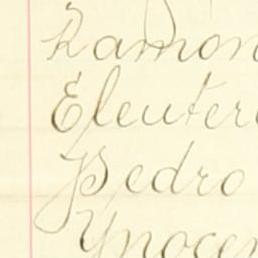 Ramon
Eleuter
Pedro
Ynocen